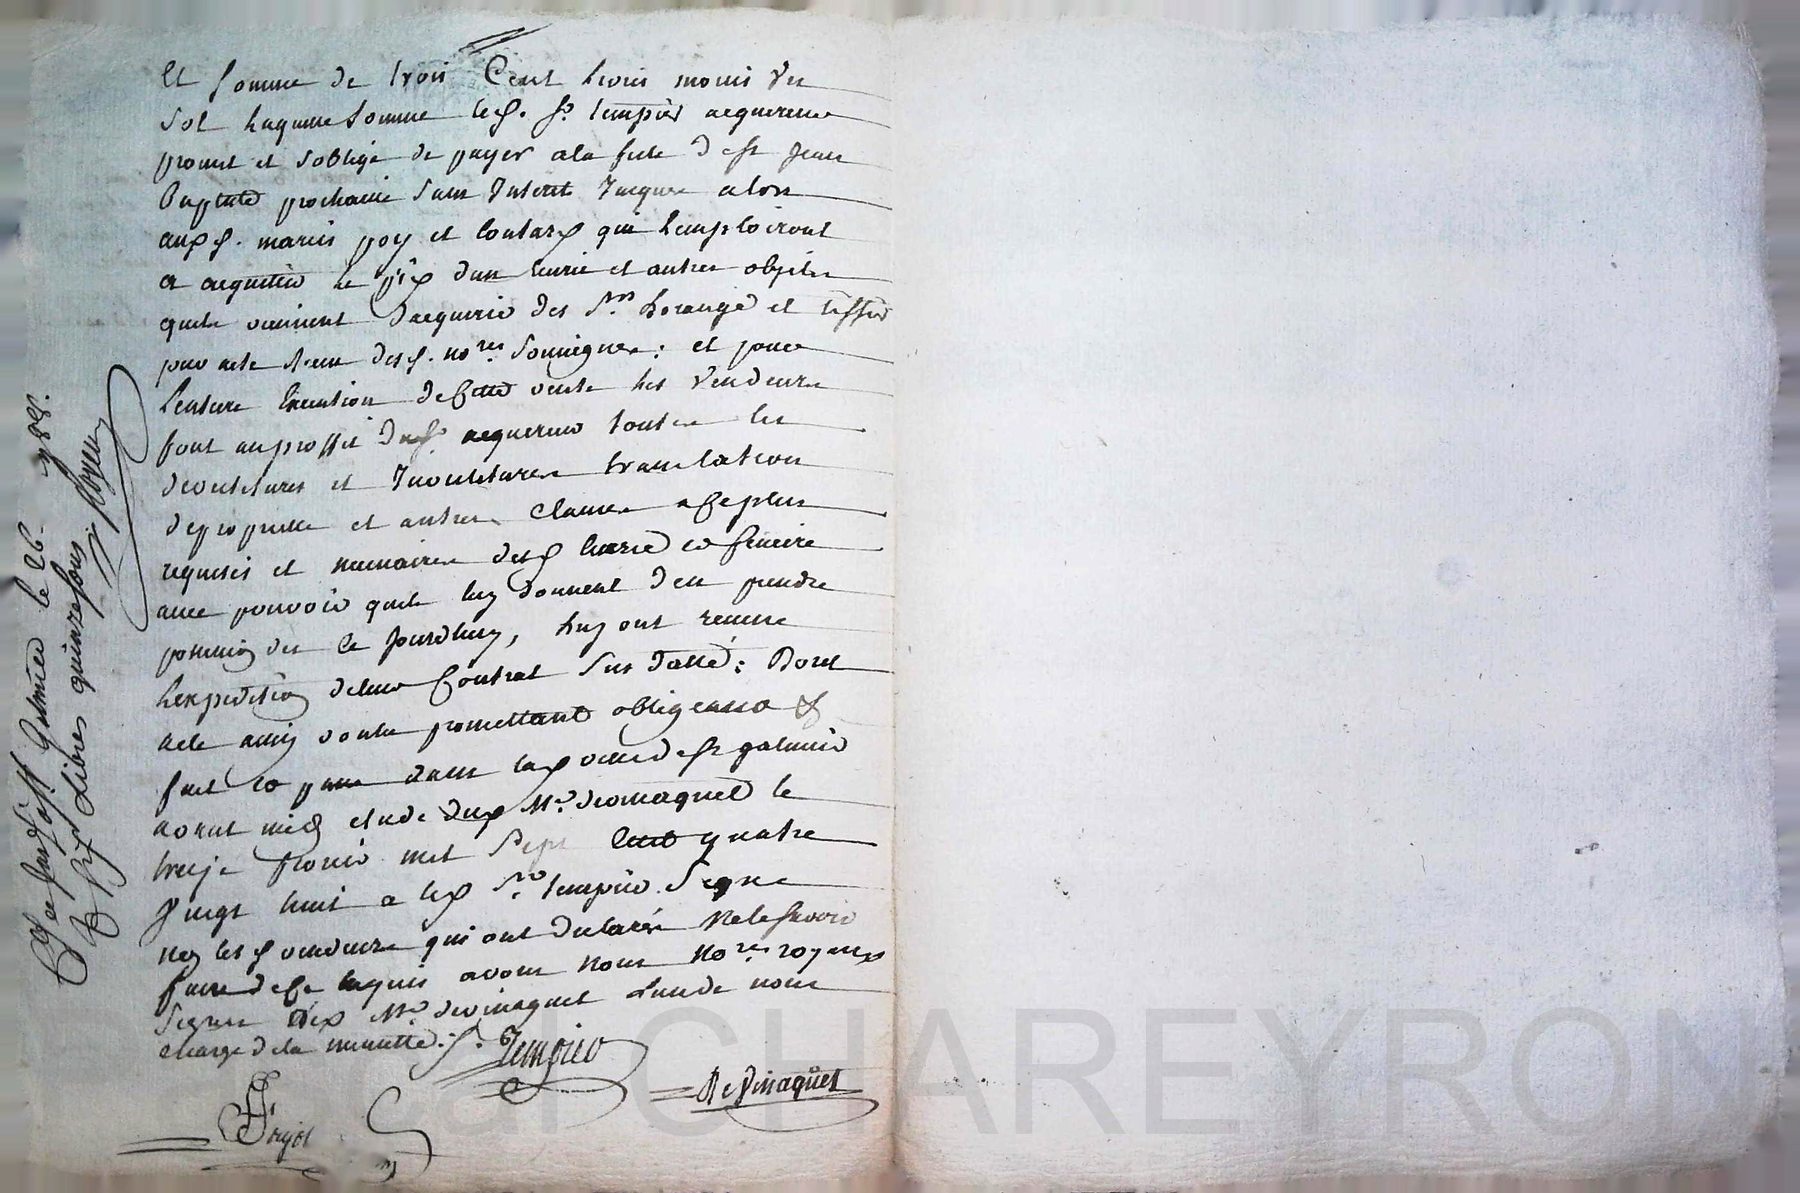 et somme de trois Cent trois moins un
sol laquelle somme led. Sr. tempier acquereur
promet et s'oblige de payer a la fete de St Jean
Baptiste prochaine sans Interet Jusques alors
auxd. mariés poy et qui l'employeront
a acquitter le prix d'une terre et autres objets
quils viennent d'acquerir des Srs. et
par acte recu desd. nores soussignes : et pour
l'entiere Execution de Cette vente les vendeurs
font au proffit dud. acquereur toutes les
devestitures et Investitures translation
de proprieté et autres clauses a Ce plus
requises et necessaires
avec pouvoir quils luy donnent d'en prendre
possession des ce jourdhuy, luy ont remise
l'expedition de leur Contrat sus datté : Dont
acte ainsy voulu promettant obligeant &
fait et passé dans lad ville de St galmier
avant midy etude dud Me. devinaquet le
treize fevrier mil Sept Cent quatre
vingt huit a led Sr. tempier Signé
non lesd vendeurs qui ont declarés ne le scavoir
faire de Ce requis avons nous nores royaux
signes led Me devinaquet l'un de nous
chargé de la minutte. S. Tempier
Devinaquet
St Galmier le 26. 1788.
livres quinze sous
CHAREYRON